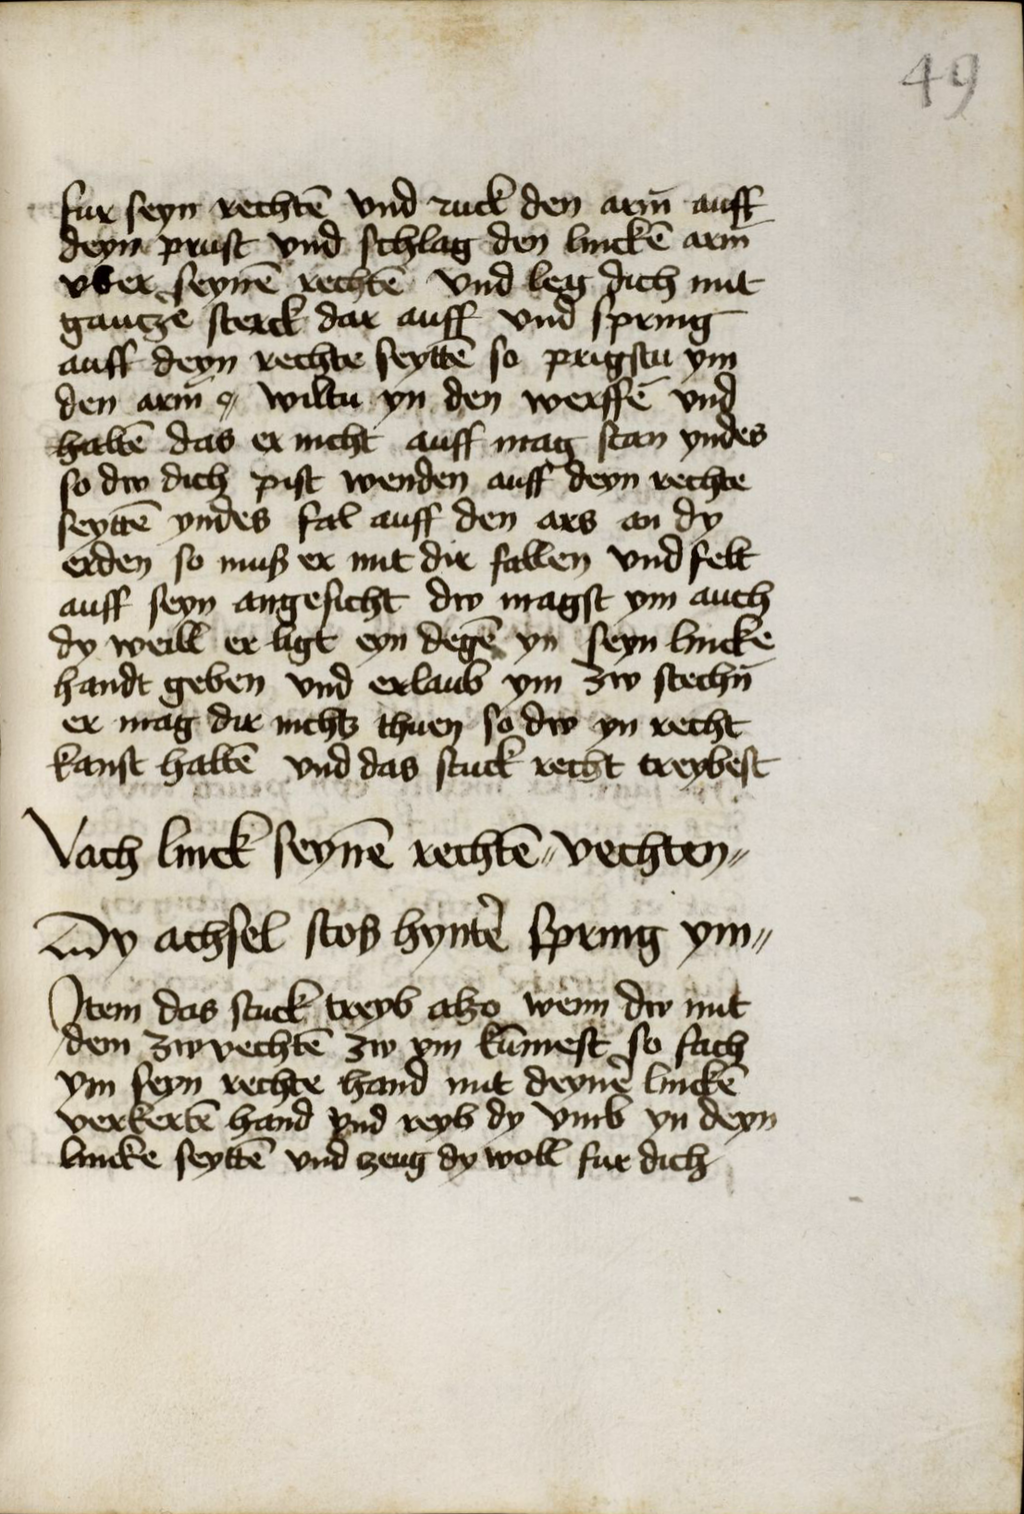 49
fur seyn rechtē vnd ruck den arm̄ auff
deyn prust vnd schlag den linckē arm̄
vber seynē rechtē vnd leg dich mit
gantze sterck dar auff vnd spring
auff deyn rechte seyttē so prigstu ym
den arm̄ wiltu yn den werffē vnd
haltē das er nicht auff mag stan yndes
so dw dich pist wenden auff deyn rechte
seyttē yndes fal auff den ars an dy
erden so muß er mit dir fallen vnd felt
auff seyn angesicht dw magst ym auch
dy weill er ligt eyn degē yn seyn lincke
handt geben vnd erlaub ym zw stechn̄
er mag dir nichtz thuen so dw yn recht
kanst haltē vnd das stuck recht treybest
Vach linck seynē rechtē〃 vechten〃
Dy achsel stoß hynter̄ spring ym〃
Item das stuck treyb alzo wenn dw mit
dem zwvechtē zw ym kūmest so fach
ym seyn rechte hand mit deynē linckē
verkertē hand vnd reyb dy vmb yn deyn
lincke seyttē vnd zeug dy woll fur dich